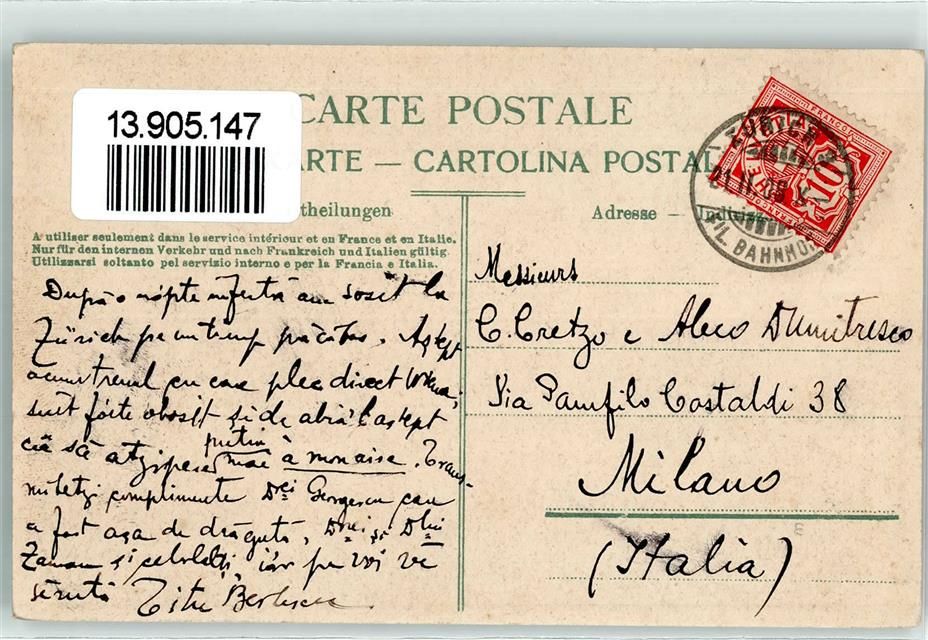 13.905.147
CARTE POSTALE
ARTE – CARTOLINA POSTAL
theilungen
Adresse – Indirizzo
A utiliser seulement dans le service intérieur et en France et en Italie.
Nur für den internen Verkehr und nach Frankreich und Italien gültig.
Utilizzarsi soltanto pel servizio interno e per la Francia e Italia.
ZÜRICH
FIL. BAHNHOF
10
FRANCO
După o nópte infectă am sosit la
Zürich pe un timp păcătos. Aştept
acum trenul cu care plec direct Viena;
sunt fórte obosit şi de abia 'l aştept
ca să puţin à mon aise. Trans-
miteţi complimente Drei Georgescu care
a fost aşa de drăguţă, Drei şi Dlui
Zaman şi celorlalţi, iar pe voi vĕ
sărută Titu
Messieurs
C. Cretzo e Aleco Dumitresco
Via Pamfilo Castaldi 38
Milano
(Italia)